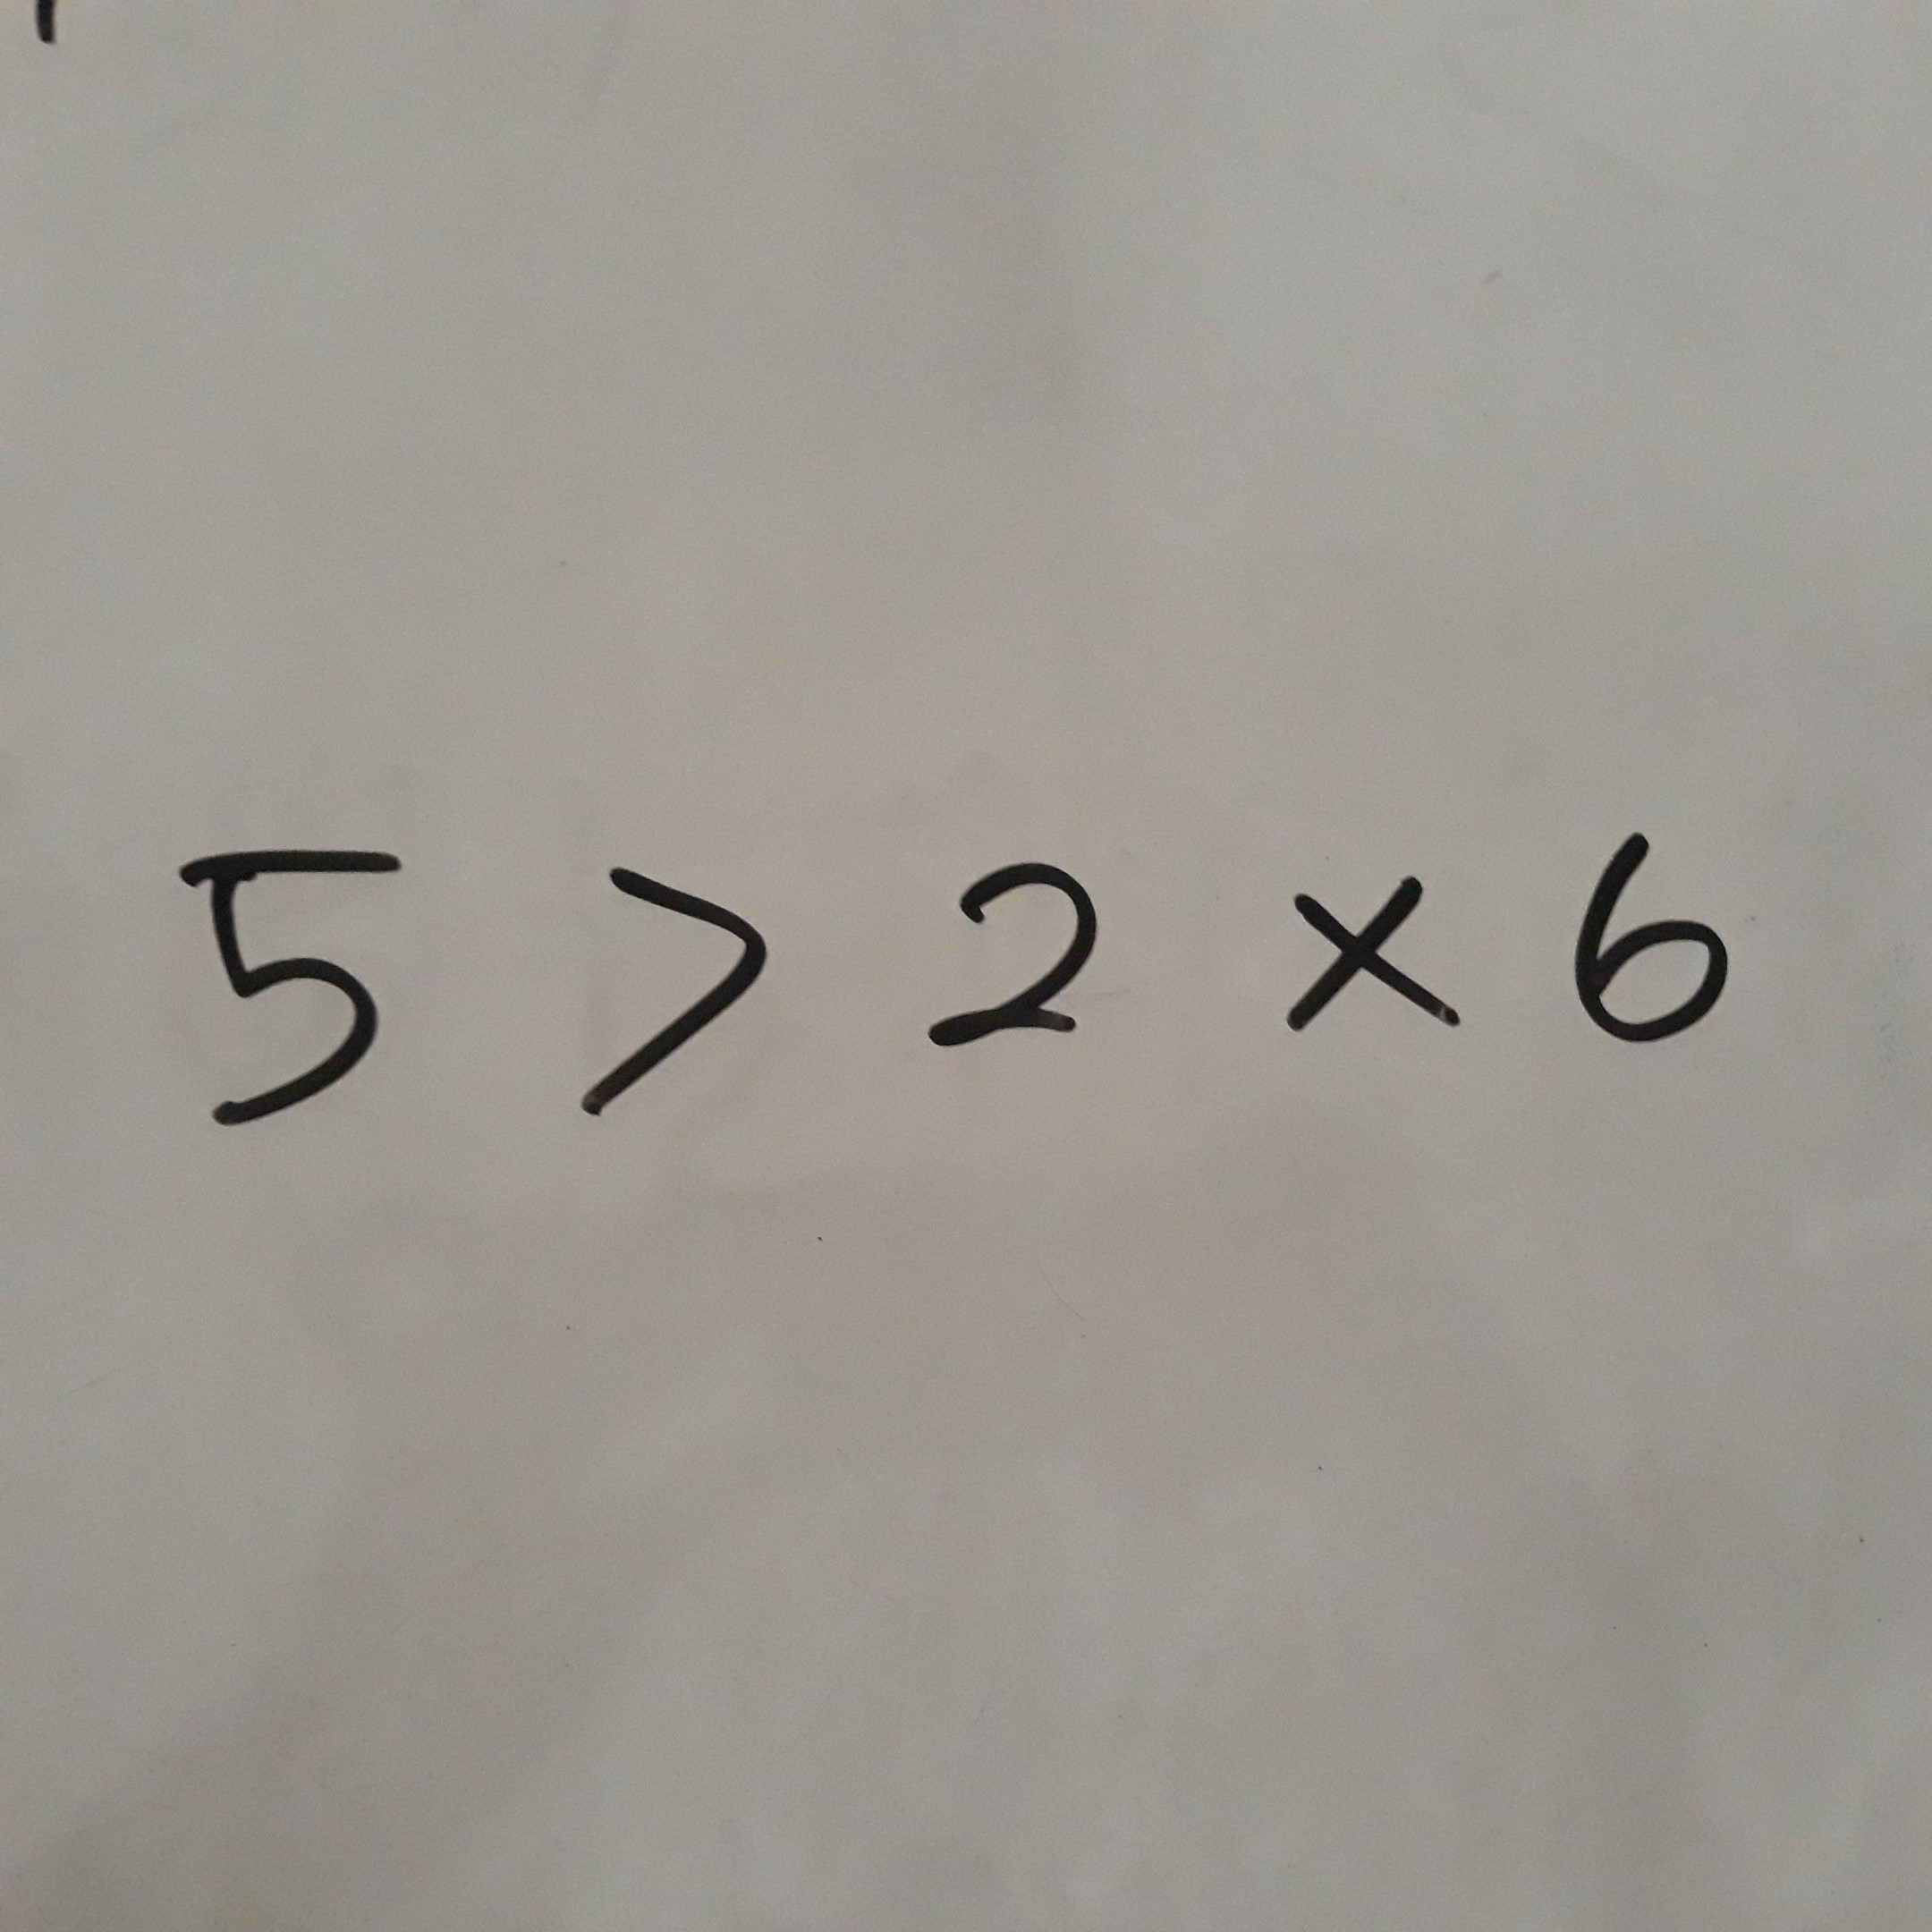 5 > 2 × 6